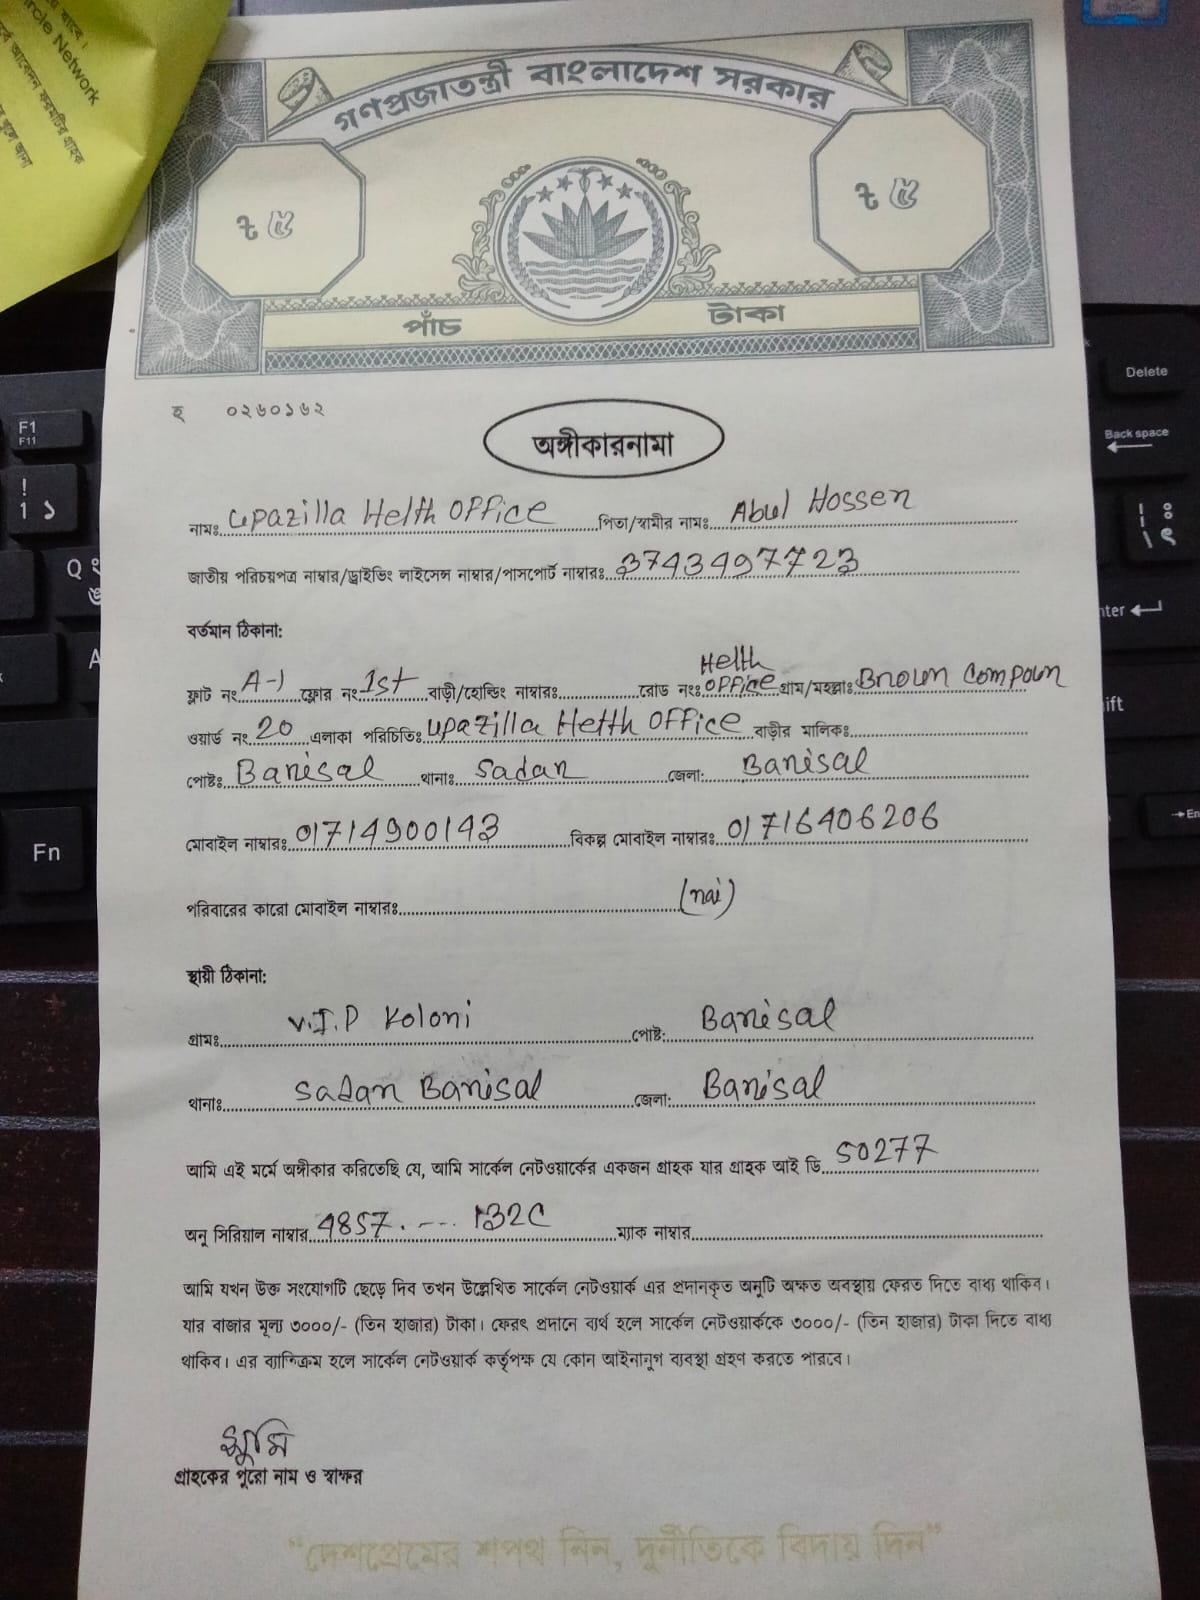 যাবে।
rcle Network
র্বে আবেদন ফরমটির গ্রাহক
গণপ্রজাতন্ত্রী বাংলাদেশ সরকার
৳ ৫
৳ ৫
পাঁচ
টাকা
হ ০২৬০১৬২
অঙ্গীকারনামা
নামঃ upazilla Helth OFFice পিতা/স্বামীর নামঃ Abul Hossen
জাতীয় পরিচয়পত্র নাম্বার/ড্রাইভিং লাইসেন্স নাম্বার/পাসপোর্ট নাম্বারঃ 3743497723
বর্তমান ঠিকানা:
ফ্লাট নং A-1 ফ্লোর নং 1st বাড়ী/হোল্ডিং নাম্বারঃ রোড নংঃ Helth OFFice গ্রাম/মহল্লাঃ Brown Compoun
ওয়ার্ড নং 20 এলাকা পরিচিতিঃ upazilla Hetth OFFice বাড়ীর মালিকঃ
পোষ্টঃ Barisal থানাঃ Sadar জেলা: Barisal
মোবাইল নাম্বারঃ 01714900143 বিকল্প মোবাইল নাম্বারঃ 01716406206
পরিবারের কারো মোবাইল নাম্বারঃ (nai)
স্থায়ী ঠিকানা:
গ্রামঃ V.I.P Koloni পোষ্ট: Barisal
থানাঃ Sadar Barisal জেলা: Barisal
আমি এই মর্মে অঙ্গীকার করিতেছি যে, আমি সার্কেল নেটওয়ার্কের একজন গ্রাহক যার গ্রাহক আই ডি 50277
অনু সিরিয়াল নাম্বার 4857.---132C ম্যাক নাম্বার
আমি যখন উক্ত সংযোগটি ছেড়ে দিব তখন উল্লেখিত সার্কেল নেটওয়ার্ক এর প্রদানকৃত অনুটি অক্ষত অবস্থায় ফেরত দিতে বাধ্য থাকিব।
যার বাজার মূল্য ৩০০০/- (তিন হাজার) টাকা। ফেরৎ প্রদানে ব্যর্থ হলে সার্কেল নেটওয়ার্ককে ৩০০০/- (তিন হাজার) টাকা দিতে বাধ্য
থাকিব। এর ব্যতিক্রম হলে সার্কেল নেটওয়ার্ক কর্তৃপক্ষ যে কোন আইনানুগ ব্যবস্থা গ্রহণ করতে পারবে।
সুমি
গ্রাহকের পুরো নাম ও স্বাক্ষর
"দেশপ্রেমের শপথ নিন, দুর্নীতিকে বিদায় দিন"
F1
F11
!
1 ১
Q
A
Fn
Delete
Back space
nter
ift
En